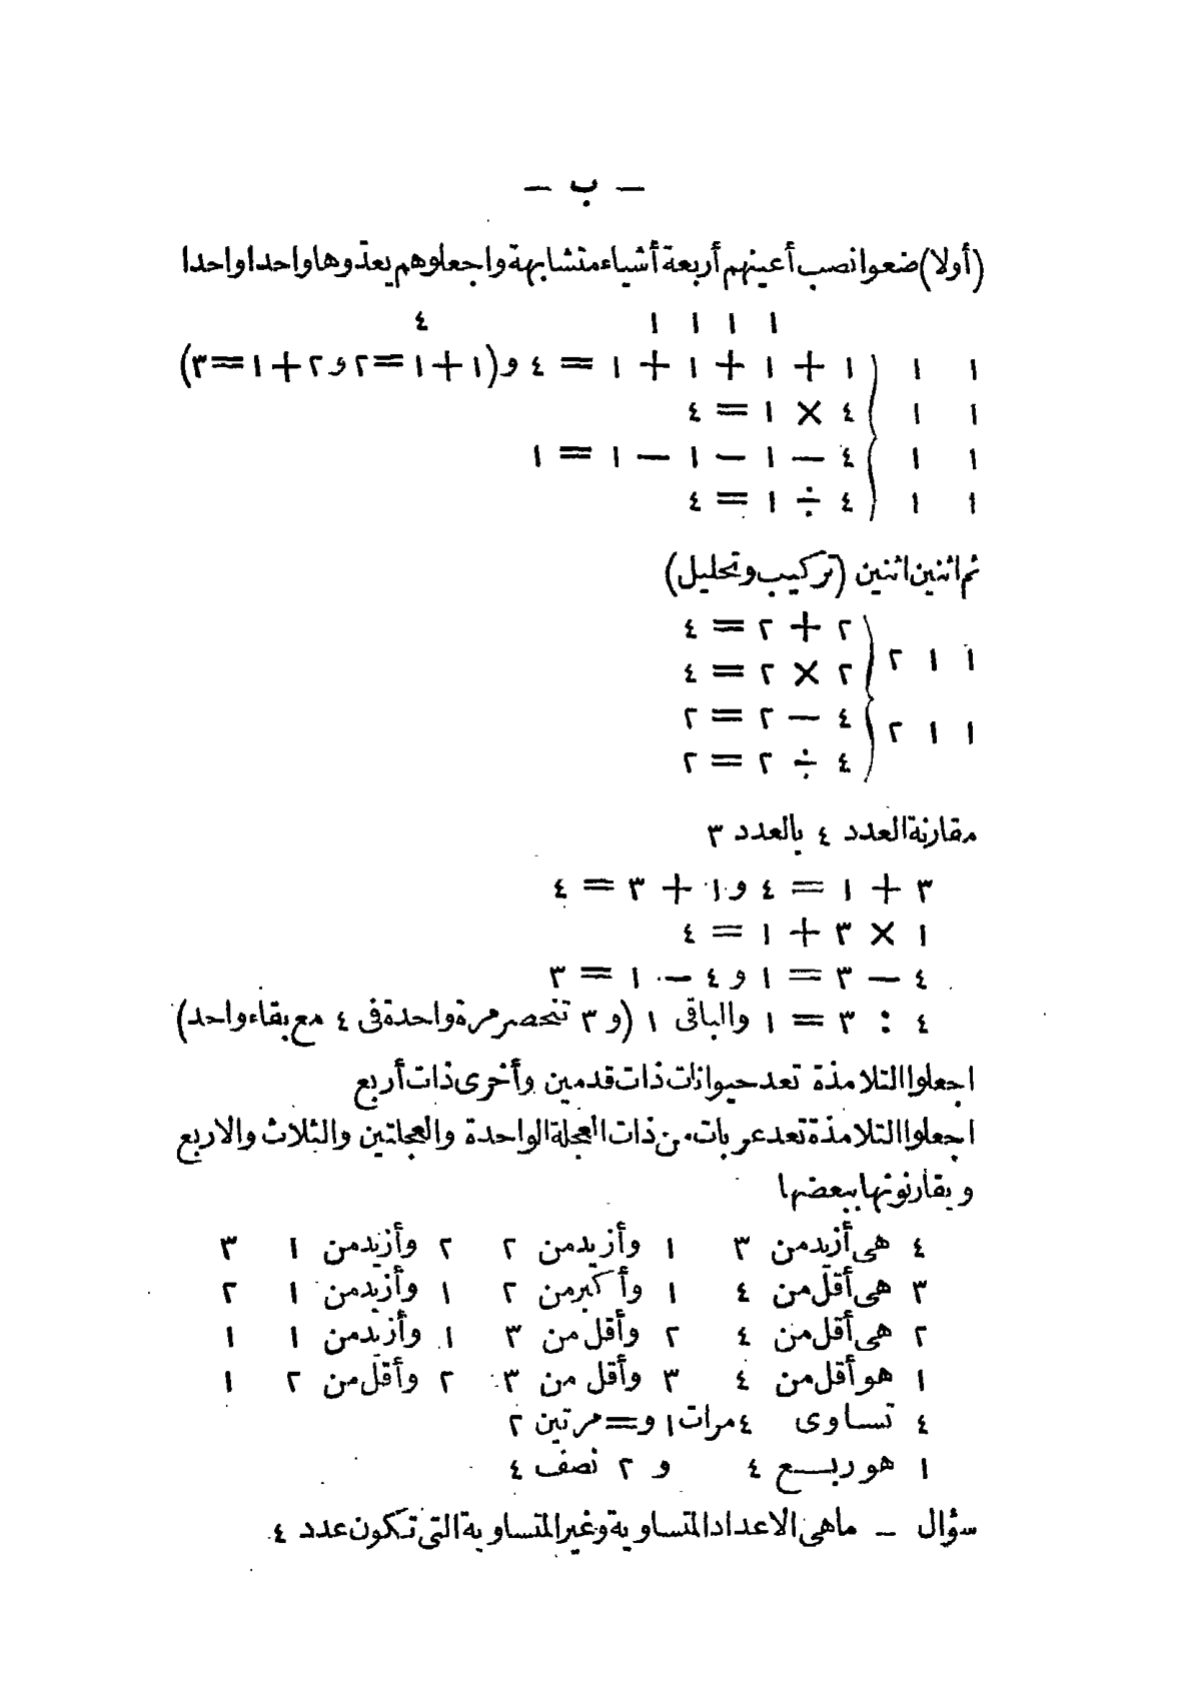 — ب —
(أولا) ضعوا نصب أعينهم أربعة أشياء متشابهة واجعلوهم يعدّوها واحدا واحدا
١ ١ ١ ١ ٤
١ ١ ١ + ١ + ١ + ١ = ٤ و (١ + ١ = ٢ و ٢ + ١ = ٣)
١ ١ ٤ × ١ = ٤
١ ١ ٤ — ١ — ١ — ١ = ١
١ ١ ٤ ÷ ١ = ٤
ثم اثنين اثنين (تركيب وتحليل)
٢ + ٢ = ٤
١ ١ ٢
٢ × ٢ = ٤
٤ — ٢ = ٢
١ ١ ٢
٤ ÷ ٢ = ٢
مقارنة العدد ٤ بالعدد ٣
٣ + ١ = ٤ و ١ + ٣ = ٤
١ × ٣ + ١ = ٤
٤ — ٣ = ١ و ٤ — ١ = ٣
٤ : ٣ = ١ والباقى ١ (و ٣ تنحصر مرة واحدة فى ٤ مع بقاء واحد)
اجعلوا التلامذة تعد حيوانات ذات قدمين وأخرى ذات أربع
اجعلوا التلامذة تعد عربات من ذات العجلة الواحدة والعجلتين والثلاث والاربع
ويقارنونها ببعضها
٤ هى أزيد من ٣ ١ وأزيد من ٢ ٢ وأزيد من ١ ٣
٣ هى أقلّ من ٤ ١ وأكبر من ٢ ١ وأزيد من ١ ٢
٢ هى أقل من ٤ ٢ وأقل من ٣ ١ وأزيد من ١ ١
١ هو أقل من ٤ ٣ وأقل من ٣ ٢ وأقلّ من ٢ ١
٤ تساوى ٤ مرات ١ و = مرتين ٢
١ هو ربع ٤ و ٢ نصف ٤
سؤال — ماهى الاعداد المتساوية وغير المتساوية التى تكون عدد ٤